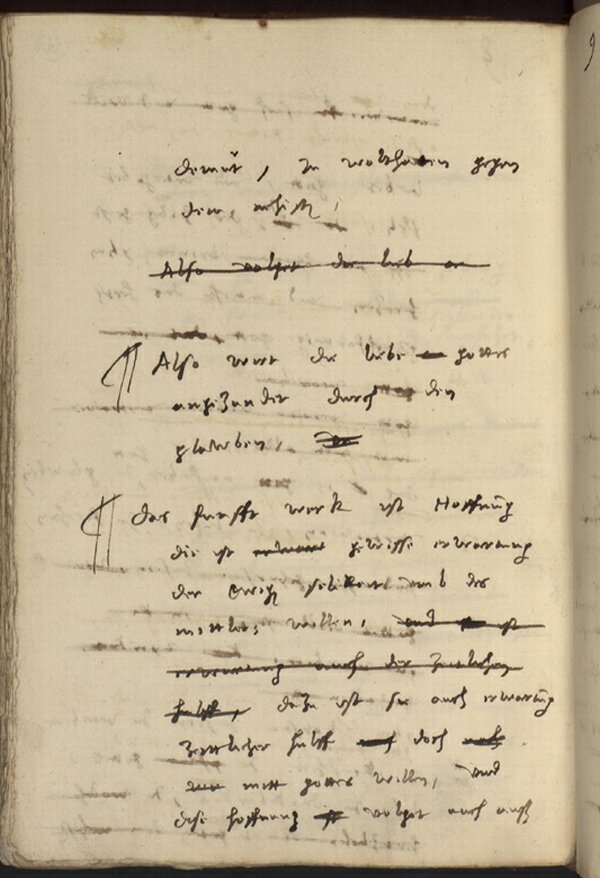 demut, zu wolthaten gegen
dem nehistẽ,
Also volget die lieb
¶ Also wirt die liebe gottes
angezundet durch den
glawben,
¶ Das funfft werk ist Hoffnũg
die ist gewisse erwartung
der ewigẽ selikeit umb des
mittlers willen, und ist
erwartung auch der zeitlichen
hulff, dazu ist sie auch erwartũg
zeitlicher hulff doch
mitt gottes willen, und
dise hoffnung volget auch auß